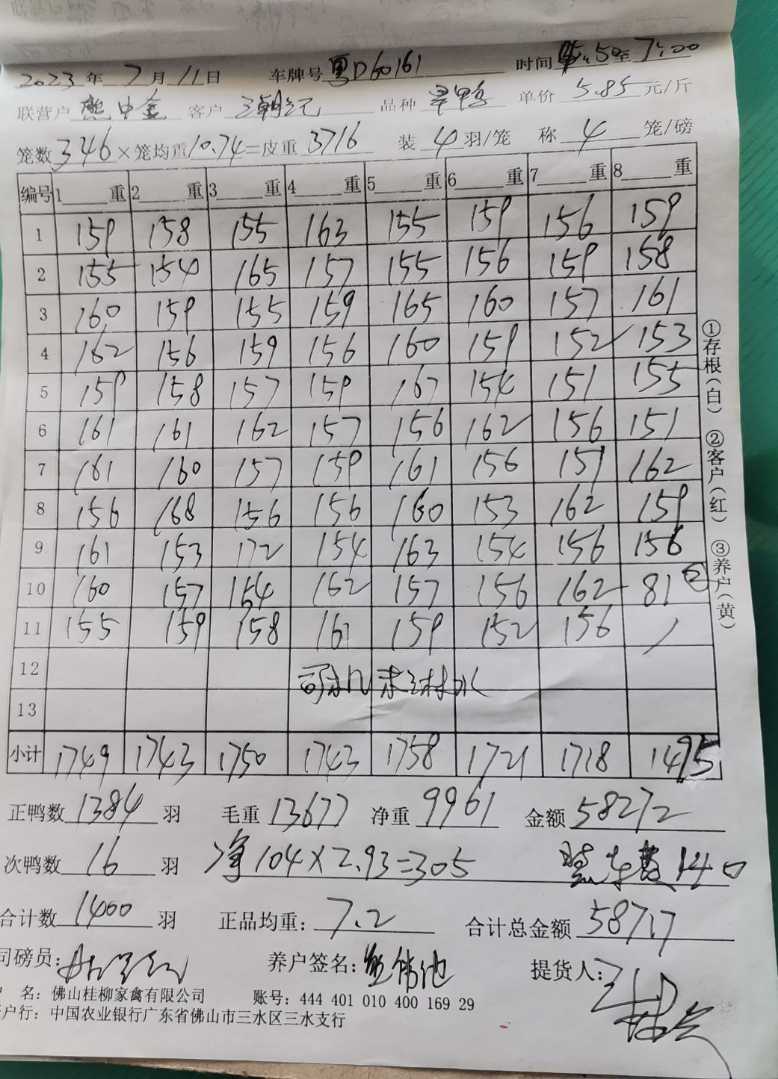 2023年7月11日 车牌号 粤D60161 时间 5:50至7:00
联营户 熊中金 客户 品种 单价 5.85 元/斤
笼数 346 ×笼均重 10.74 =皮重 3716 装 4 羽/笼 称 4 笼/磅
编号 1 重 2 重 3 重 4 重 5 重 6 重 7 重 8 重
1 159 158 155 163 155 159 156 159
2 155 154 165 157 155 156 159 158
3 160 159 155 159 165 160 157 161
4 162 156 159 156 160 159 152 153
5 159 158 157 159 167 154 151 155
6 161 161 162 157 156 162 156 151
7 161 160 157 159 161 156 151 162
8 156 168 156 156 160 153 162 159
9 161 153 172 154 163 154 156 156
10 160 157 154 162 157 156 162 81 ②
11 155 159 158 161 159 152 156 /
12
13
小计 1749 1743 1750 1743 1758 1721 1718 1495
正鸭数 1384 羽 毛重 13677 净重 9961 金额 58272
次鸭数 16 羽 净104×2.93=305 140
合计数 1400 羽 正品均重: 7.2 合计总金额 58717
司磅员: 养户签名: 熊伟池 提货人:
户 名: 佛山桂柳家禽有限公司 账号: 444 401 010 400 169 29
开户行: 中国农业银行广东省佛山市三水区三水支行
①存根(白) ②客户(红) ③养户(黄)